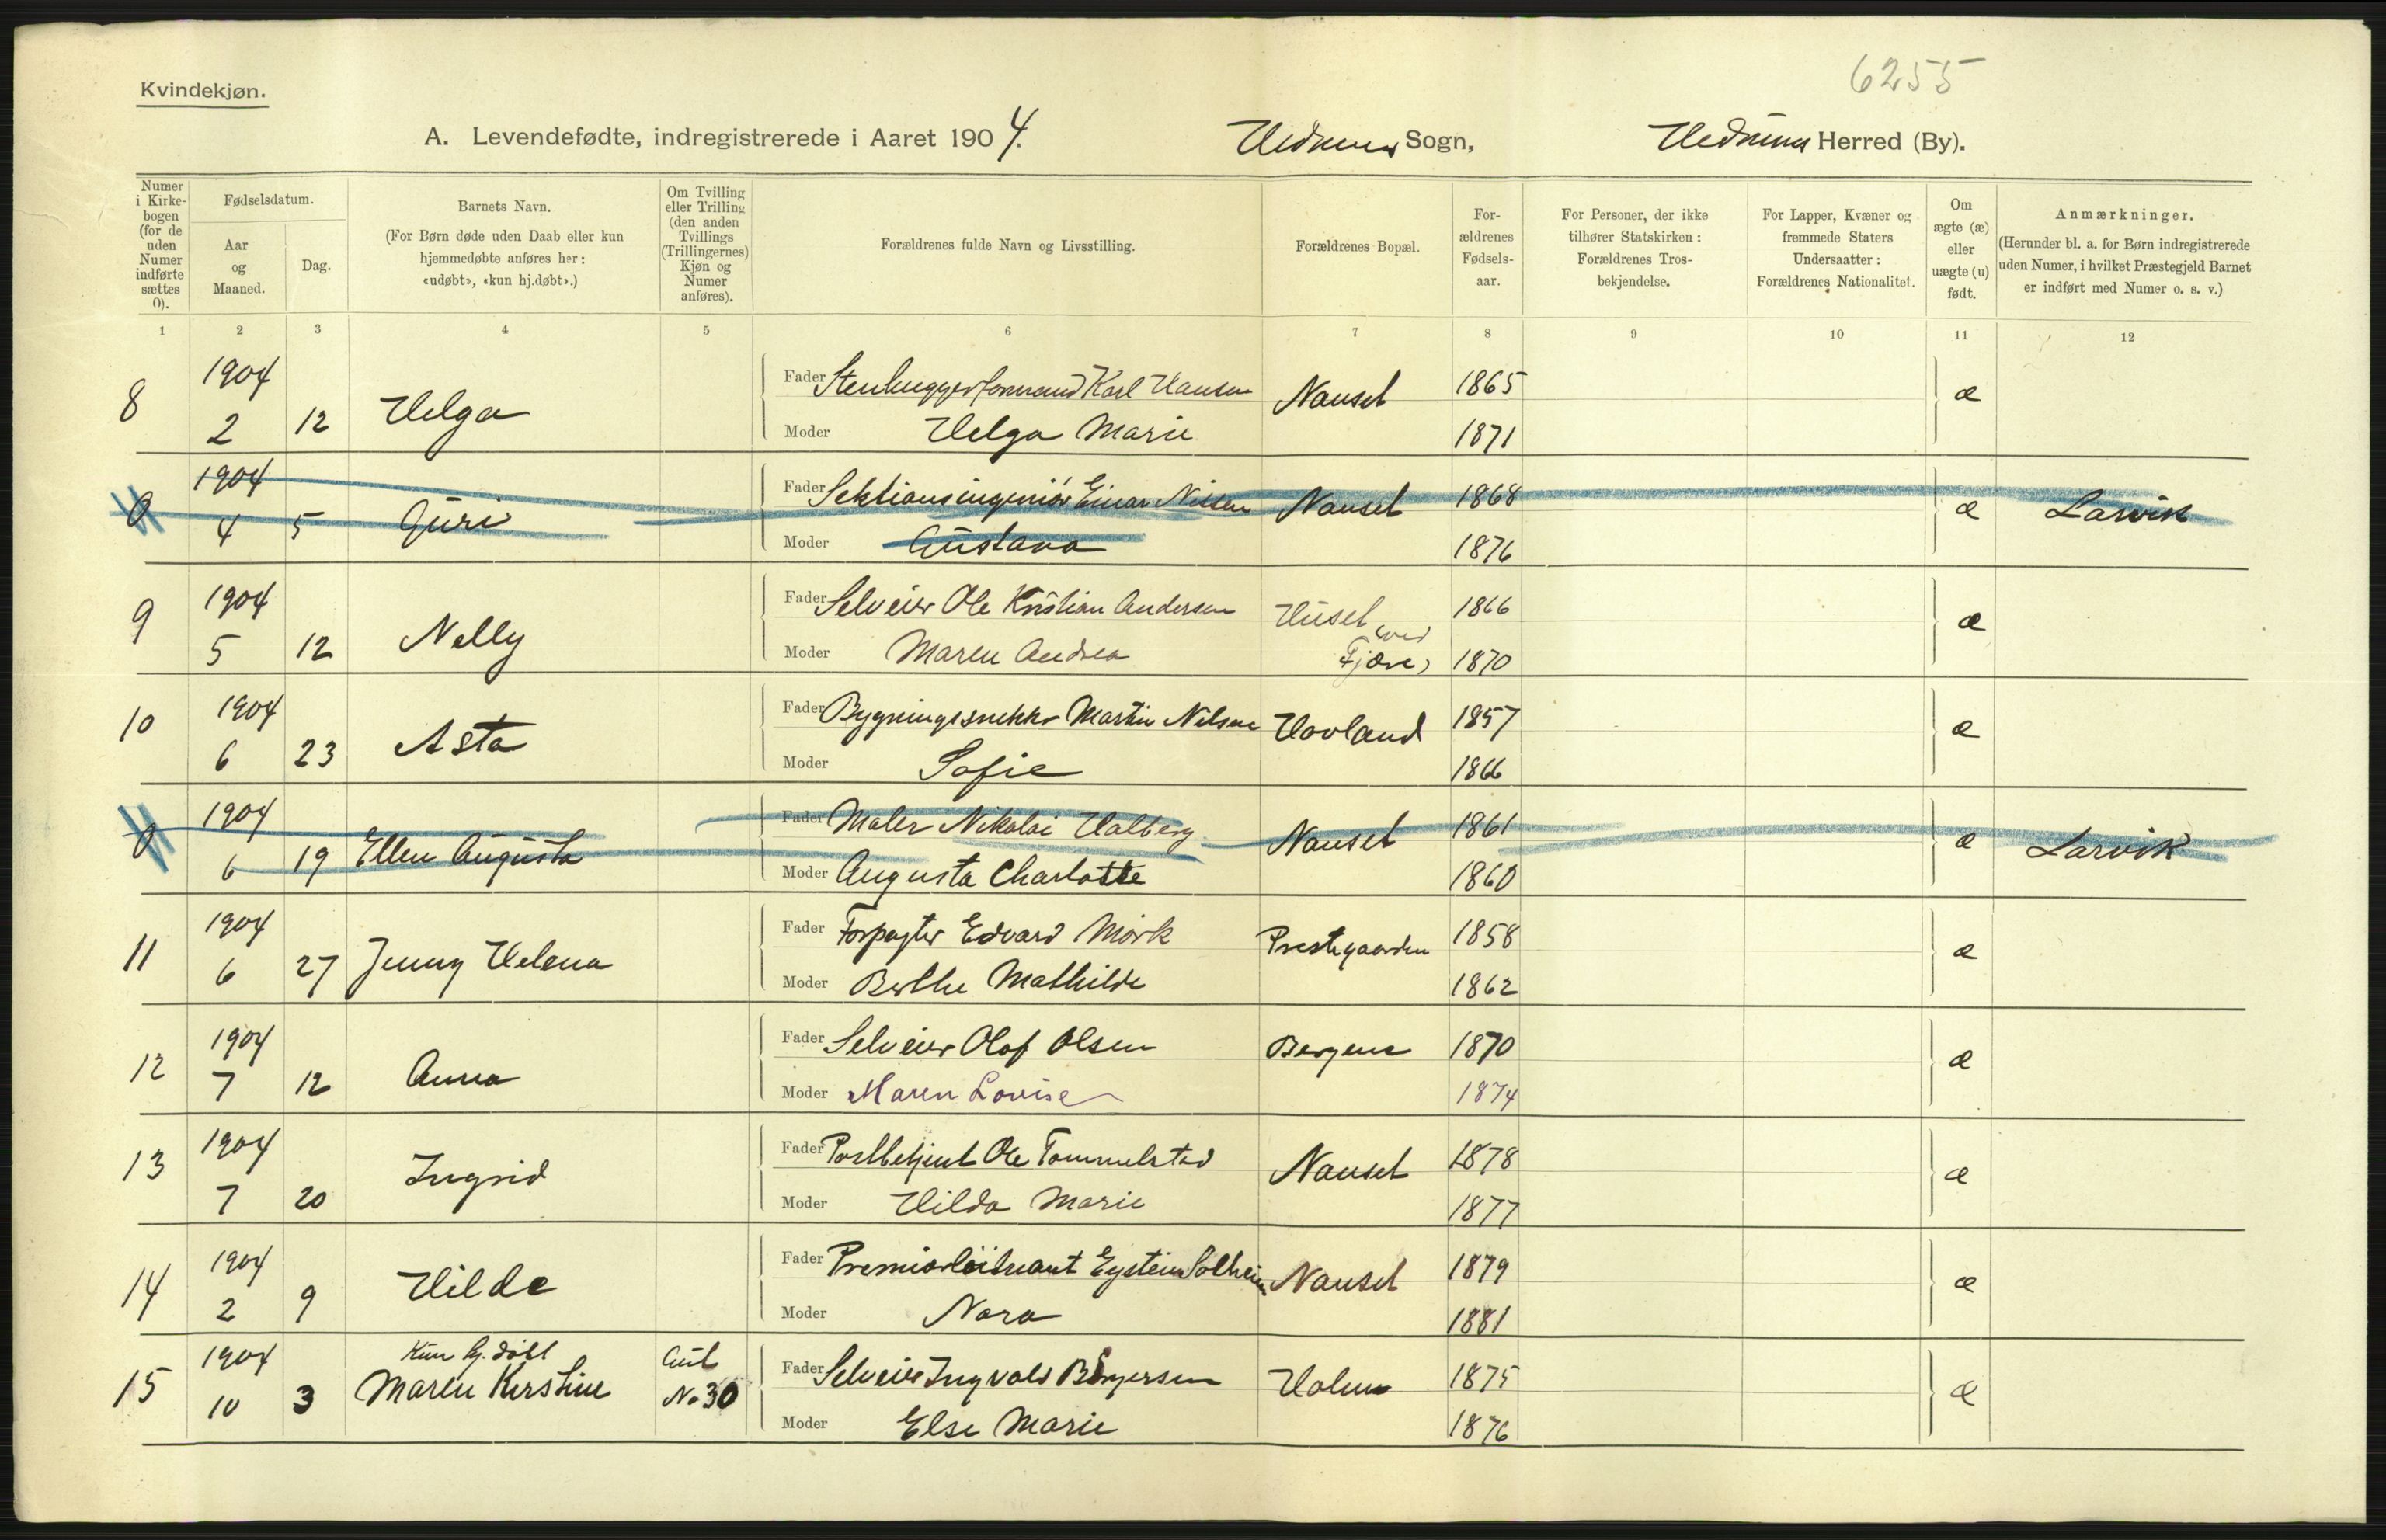 6255
Kvindekjøn.
A. Levendefødte, indregistrerede i Aaret 1904. Hedrums Sogn, Hedrums Herred (By).
Numer i Kirkebogen (for de uden Numer indførte sættes 0).
Fødselsdatum.
Aar og Maaned.
Dag.
Barnets Navn.
(For Børn døde uden Daab eller kun
hjemmedøbte anføres her:
«udøbt», «kun hj.døbt».)
Om Tvilling
eller Trilling
(den anden
Tvillings
(Trillingernes)
Kjøn og
Numer
anføres).
Forældrenes fulde Navn og Livsstilling.
Forældrenes Bopæl.
For-
ældrenes
Fødsels-
aar.
For Personer, der ikke
tilhører Statskirken:
Forældrenes Tros-
bekjendelse.
For Lapper, Kvæner og
fremmede Staters
Undersaatter:
Forældrenes Nationalitet.
Om
ægte (æ)
eller
uægte (u)
født.
Anmærkninger.
(Herunder bl. a. for Børn indregistrerede
uden Numer, i hvilket Præstegjeld Barnet
er indført med Numer o. s. v.)
1 2 3 4 5 6 7 8 9 10 11 12
8 1904 Helga Fader Stenhuggerformand Karl Hansen Nanset 1865 æ
2 12 Moder Helga Marie 1871
0 1904 Guri Fader Sektionsingeniór Einar Nilsen Nanset 1868 æ Larvik
4 5 Moder Gustava 1876
9 1904 Nelly Fader Selveier Ole Kristian Andersen Huset 1866 æ
5 12 Moder Maren Andrea (ved Fjære) 1870
10 1904 Asta Fader Bygningssnekker Martin Nilsen Hovland 1857 æ
6 23 Moder Sofie 1866
0 1904 Ellen Augusta Fader Maler Nikolai Halberg Nanset 1861 æ Larvik
6 19 Moder Augusta Charlotte 1860
11 1904 Jenny Helena Fader Forpagter Edvard Mørk Prestegaarden 1858 æ
6 27 Moder Berthe Mathilde 1862
12 1904 Anna Fader Selveier Olaf Olsen Bergene 1870 æ
7 12 Moder Maren Lovise 1874
13 1904 Ingrid Fader Postbetjent Ole Tommelstad Nanset 1878 æ
7 20 Moder Hilda Marie 1877
14 1904 Hilde Fader Premierløitnant Eystein Solheim Nanset 1879 æ
2 9 Moder Nora 1881
15 1904 Kun hj. døbt Gut Fader Selveier Ingvald Borgersen Holm 1875 æ
10 3 Maren Kirstine No 30 Moder Else Marie 1876